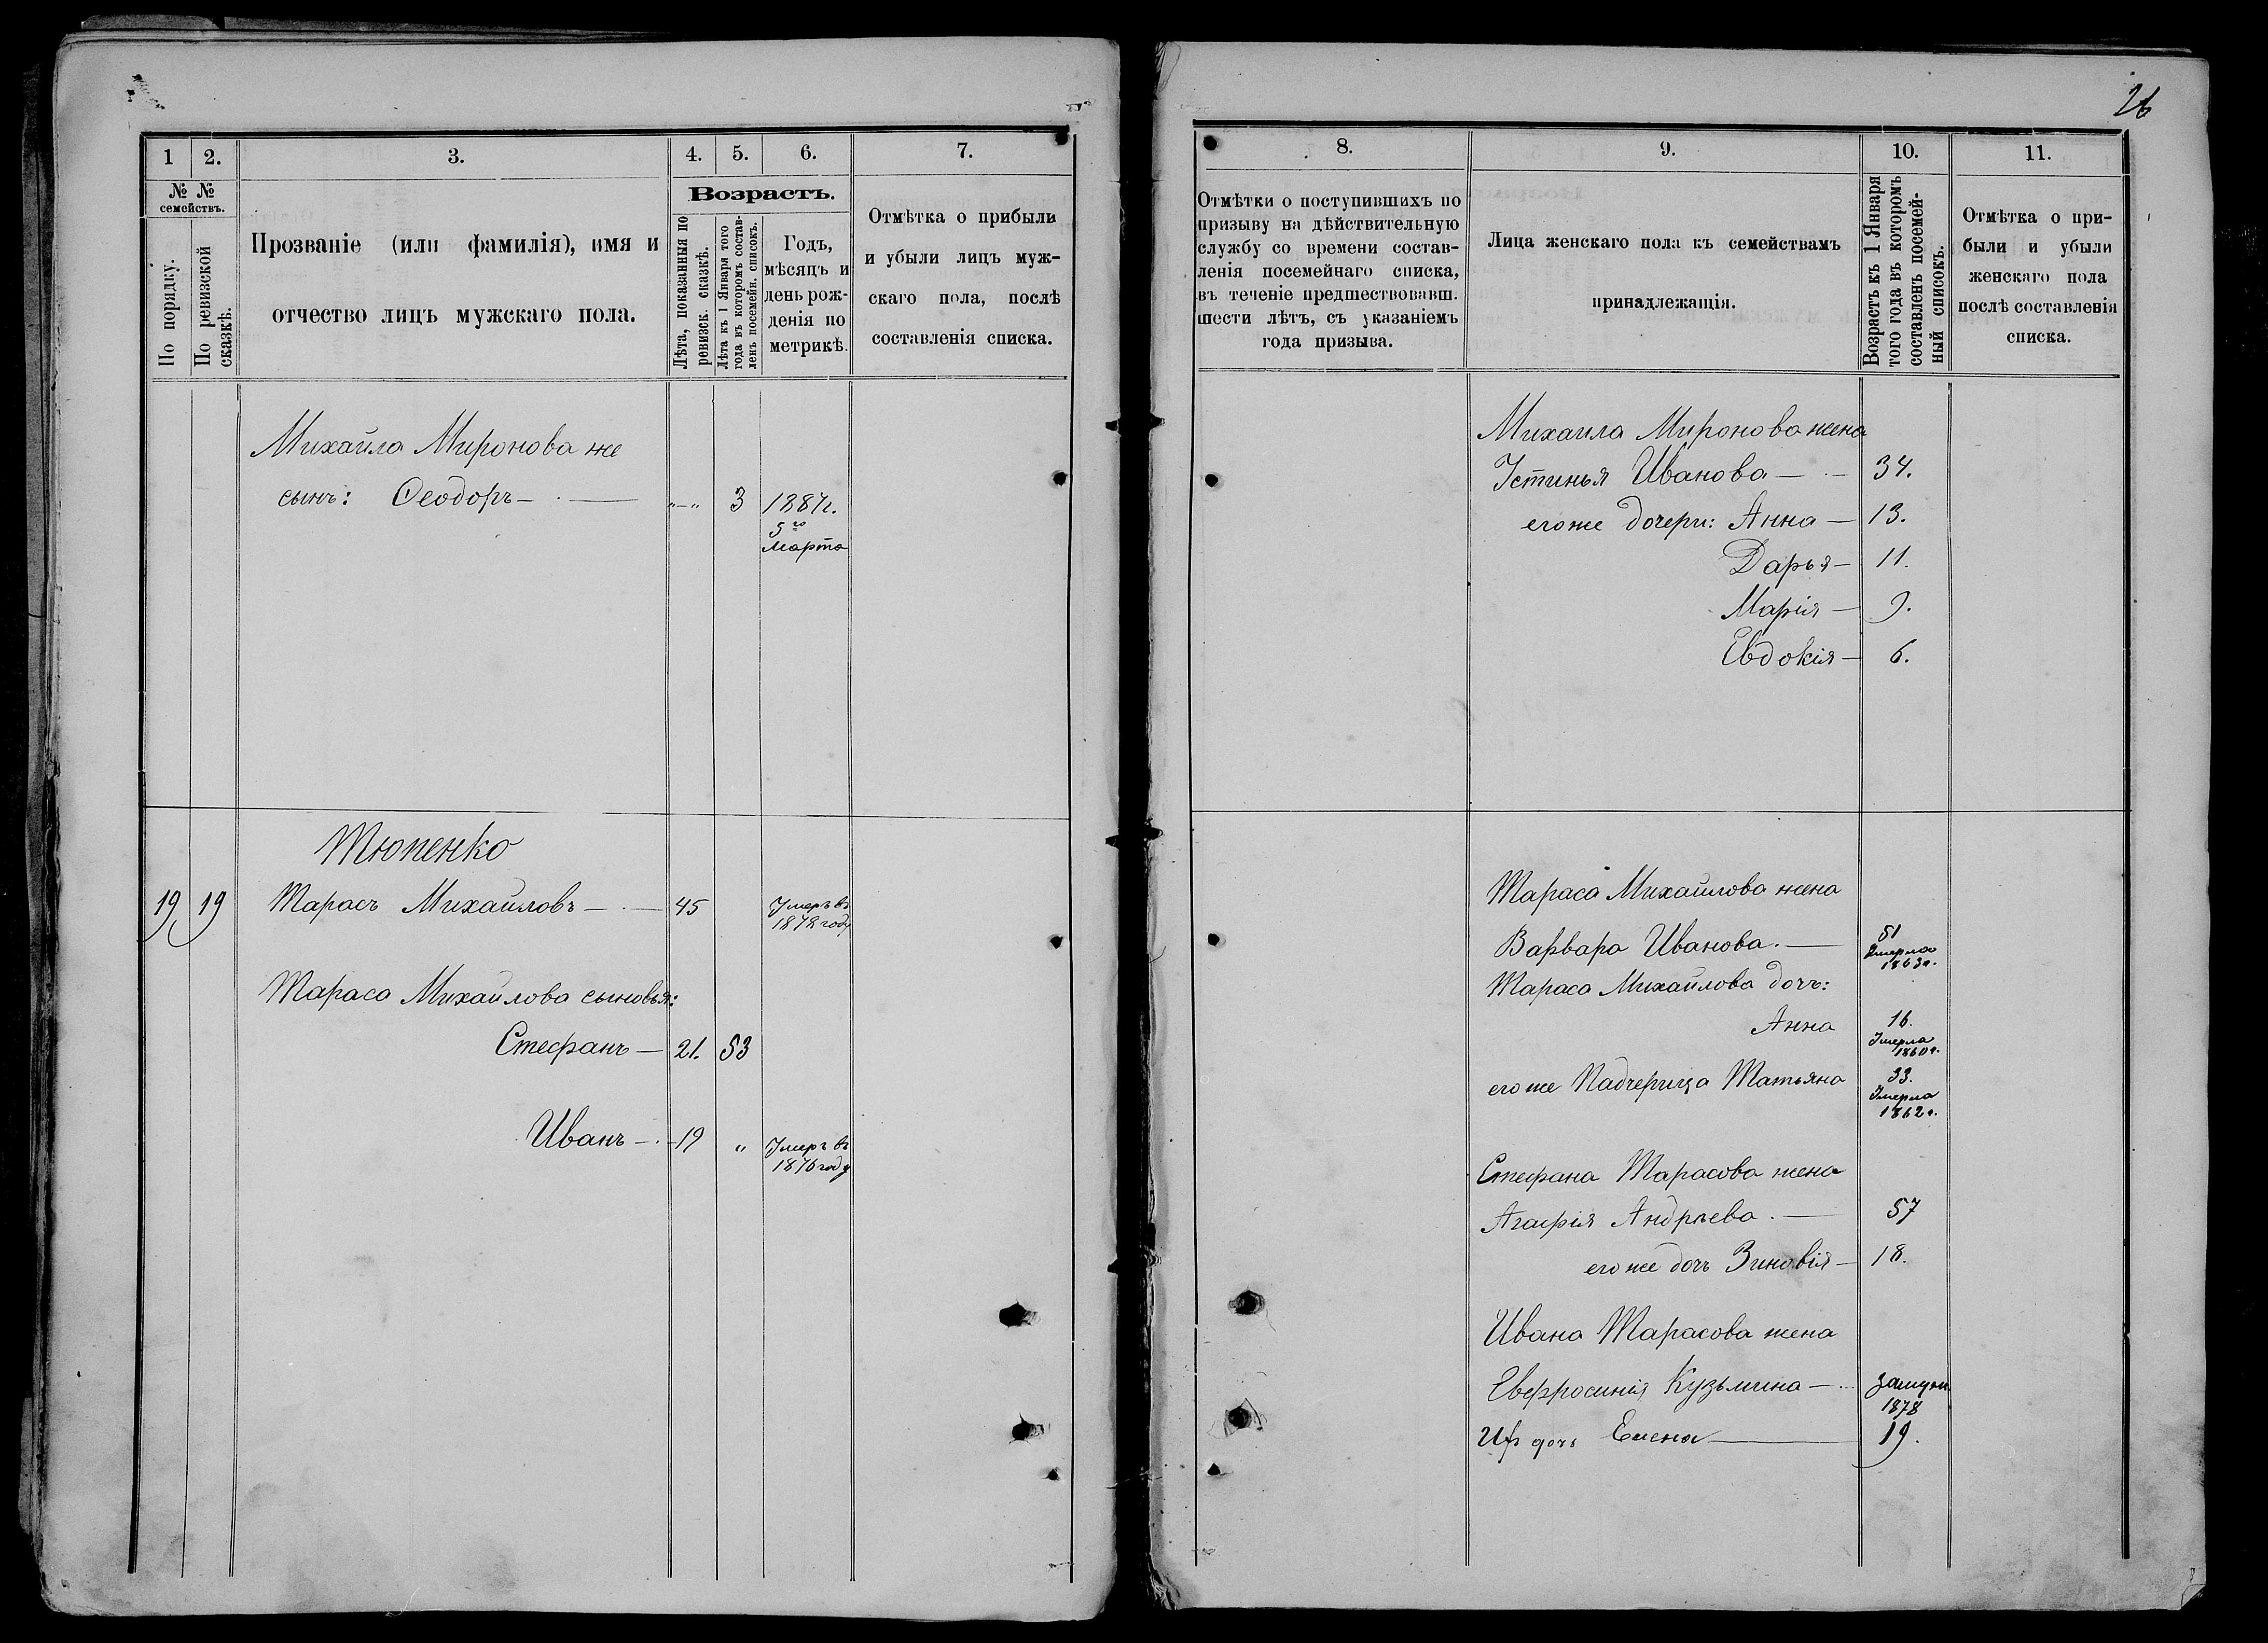 1
2.
3.
4.
5.
6.
7.
№ №
семействъ.
По порядку.
По ревизской
сказкѣ.
Прозваніе (или фамилія), имя и
отчество лицъ мужскаго пола.
Возрастъ.
Лѣта, показанныя по
ревизск. сказкѣ.
Лѣта къ 1 Января того
года въ которомъ состав-
ленъ посемейн. списокъ.
Годъ,
мѣсяцъ и
день рож-
денія по
метрикѣ.
Отмѣтка о прибыли
и убыли лицъ муж-
скаго пола, послѣ
составленія списка.
Михайла Миронова же
сынъ: Ѳеодоръ — „—„ 3 1887г.
5го
Марта
Тюпенко
19 19 Тарасъ Михайловъ — 45 Умеръ въ
1872 году
Тараса Михайлова сыновья:
Стефанъ — 21. 53
Иванъ — 19 „ Умеръ въ
1876 году
26
8.
9.
10.
11.
Отмѣтки о поступившихъ по
призыву на дѣйствительную
службу со времени состав-
ленія посемейнаго списка,
въ теченіе предшествовавш.
шести лѣтъ, съ указаніемъ
года призыва.
Лица женскаго пола къ семействамъ
принадлежащія.
Возрастъ къ 1 Января
того года въ которомъ
составленъ посемей-
ный списокъ.
Отмѣтка о при-
были и убыли
женскаго пола
послѣ составленія
списка.
Михаила Миронова жена
Устинья Иванова — 34.
его же дочери: Анна — 13.
Дарья — 11.
Марія — 9.
Евдокія — 6.
Тараса Михайлова жена
Варвара Иванова. — 51
Умерла
1863г.
Тараса Михайлова дочь:
Анна 16.
Умерла
1860г.
его же Падчерица Татьяна 33.
Умерла
1862г.
Стефана Тарасова жена
Агафія Андрѣева. — 57
его же дочь Зиновія — 18.
Ивана Тарасова жена
Евфросинія Кузьмина — замуж
1878
Их дочь Елена — 19.